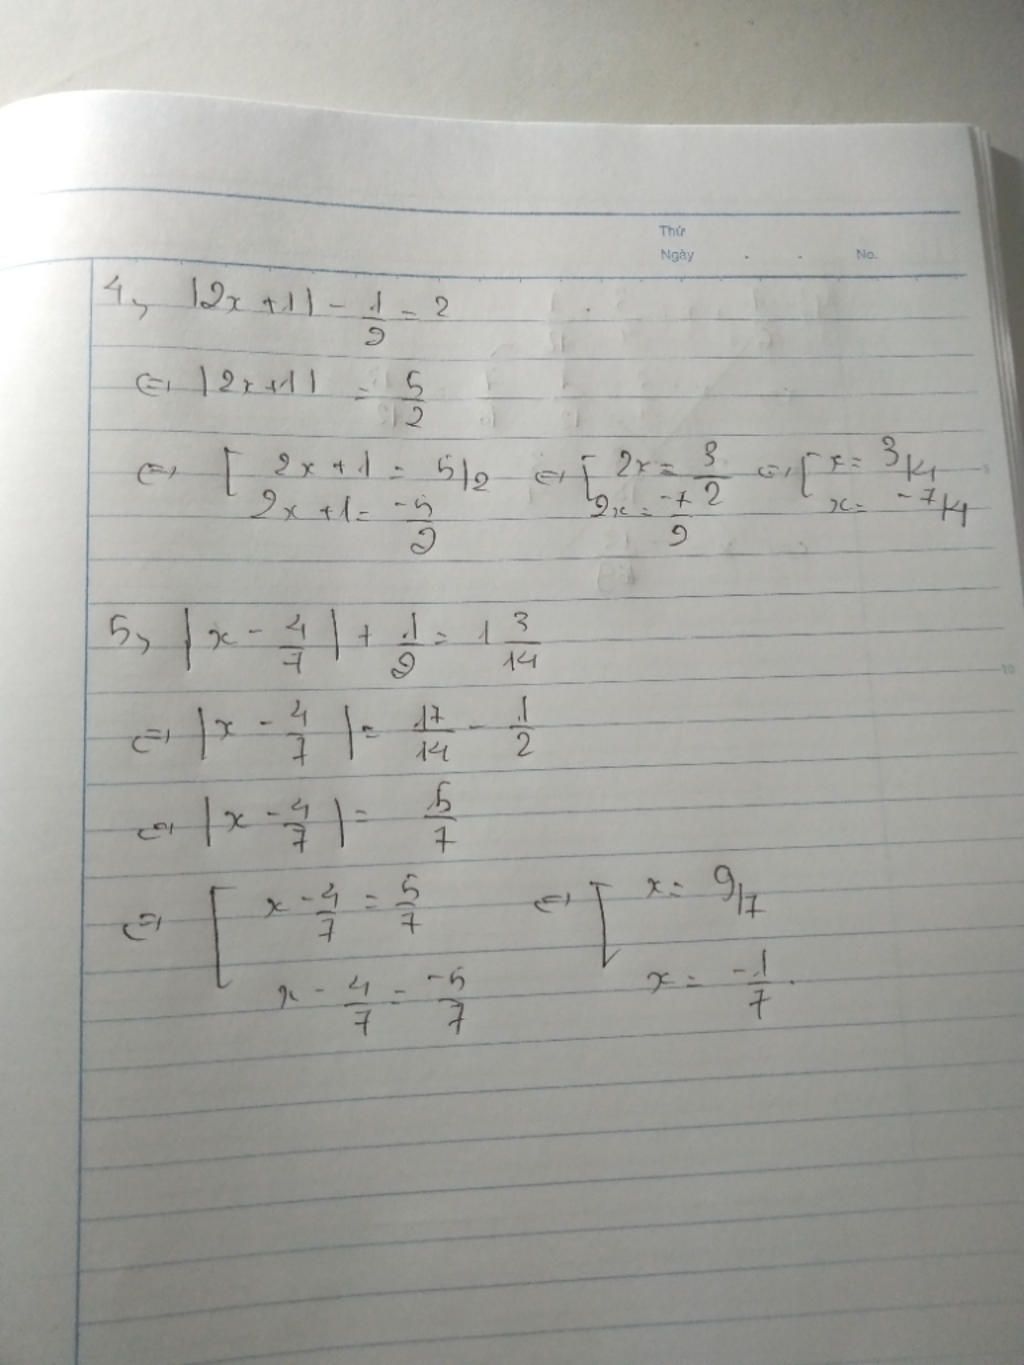 Thứ
Ngày . . No.
4, |2x + 1| - 1/2 = 2
⇔ |2x+1| = 5/2
⇔ [ 2x + 1 = 5/2 ⇔ [ 2x = 3/2 ⇔ [ x = 3/4
2x + 1 = -5/2 2x = -7/2 x = -7/4
5, |x - 4/7| + 1/2 = 1 3/14
⇔ |x - 4/7| = 17/14 - 1/2
⇔ |x - 4/7| = 5/7
⇔ [ x - 4/7 = 5/7 ⇔ [ x = 9/7
x - 4/7 = -5/7 x = -1/7.
10